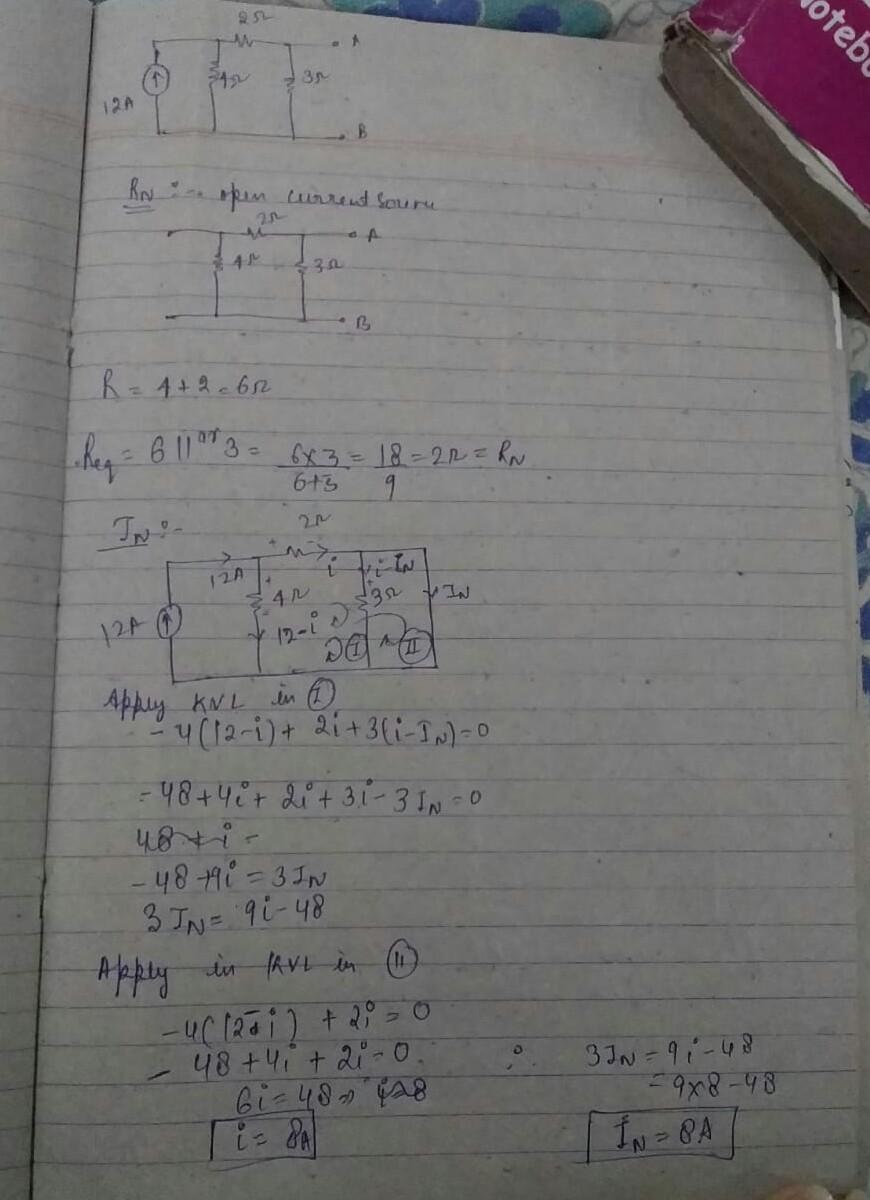 Noteb
2Ω
A
4Ω
3Ω
12A
B
RN :- open current source
2Ω
A
4Ω
3Ω
B
R = 4+2=6Ω
Req = 6 11er 3 = 6×3/6+3 = 18/9 = 2Ω = RN
IN :-
2Ω
+ -
12A
i
i-IN
+
4Ω
+
3Ω
IN
12A
12-i
I
II
Apply KVL in I
-4(12-i)+ 2i+3(i-IN)=0
-48+4i+ 2i+3i-3IN=0
48+i=
-48+9i = 3IN
3IN= 9i-48
Apply in KVL in II
-4(12-i) + 2i = 0
- 48+4i + 2i=0
6i=48 ⇒ i=8
i= 8A
∴ 3IN=9i-48
=9×8-48
IN=8A